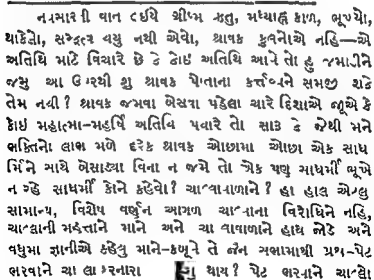 નયસારની વાત લઈએ ગ્રીષ્મ ઋતુ, મધ્યાહ્ન કાળ, ભૂખ્યો,
થાકેલો, સમ્યક્ત્વ થયુ નથી એવો, શ્રાવક કુલનોએ નહિ—એ
અતિથિ માટે વિચારે છે કે કોઇ અતિથિ આવે તો હુ જમાડીને
જમુ આ ઉપરથી શુ શ્રાવક પોતાના કર્ત્તવ્યને સમજી શકે
તેમ નથી? શ્રાવક જમવા બેસતા પહેલા ચારે દિશાએ જૂએ કે
કોઇ મહાત્મા-મહર્ષિ અતિથિ પધારે તો સારૂ કે જેથી મને
ભક્તિનો લાભ મળે દરેક શ્રાવક ઓછામા ઓછા એક સાધ
ર્મિને સાથે બેસાડ્યા વિના ન જમે તો એક પણ સાધર્મી ભૂખે
ન રહે સાધર્મી કોને કહેવો? ચાલાવાળાને? હા હાલ એટલુ
સામાન્ય, વિશેષ વર્ણન આગળ ચાલાના વિરોધિને નહિ,
ચાલાની મહત્તાને માને અને ચા વાવાળાને હાથ જોડે અને
વધુમા જ્ઞાનીએ કહેલુ માને-કબૂને તે જૈન સભામાથી પ્રશ્ન-પેટ
ભરવાને ચા લા કરનારા નુ થાય? પેટ ભરવાને ચાલો